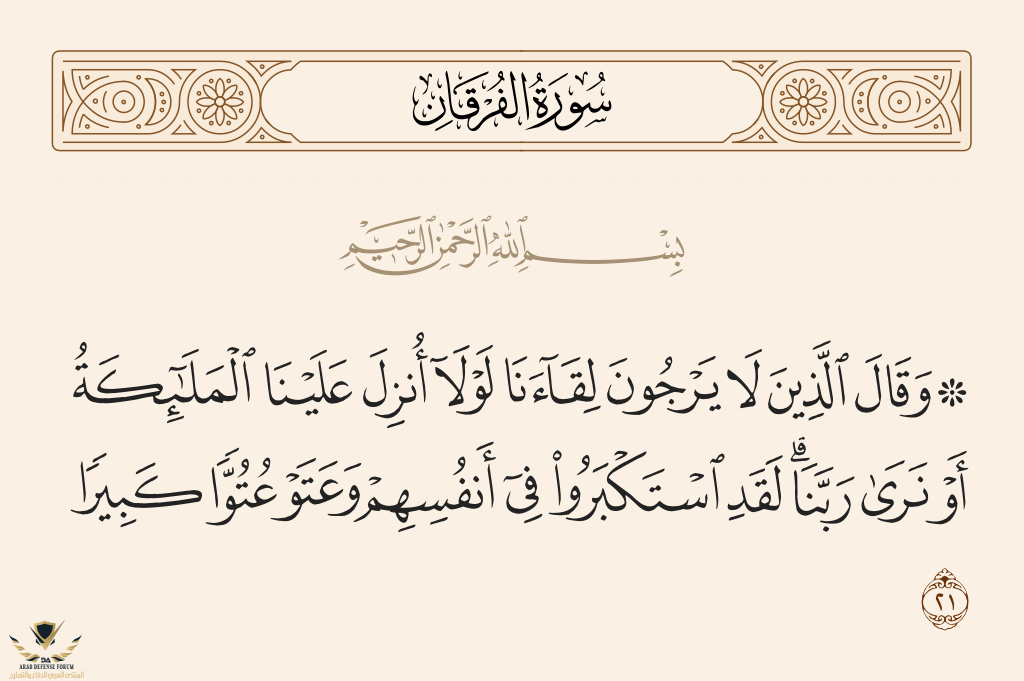 سُورَةُ الفُرْقَانِ
بِسْمِ ٱللَّهِ ٱلرَّحْمَٰنِ ٱلرَّحِيمِ
۞ وَقَالَ ٱلَّذِينَ لَا يَرْجُونَ لِقَآءَنَا لَوْلَآ أُنزِلَ عَلَيْنَا ٱلْمَلَٰٓئِكَةُ
أَوْ نَرَىٰ رَبَّنَاۗ لَقَدِ ٱسْتَكْبَرُوا۟ فِىٓ أَنفُسِهِمْ وَعَتَوْ عُتُوًّا كَبِيرًا
٢١
DA
ARAB DEFENSE FORUM
المنتدى العربي للدفاع والتسليح